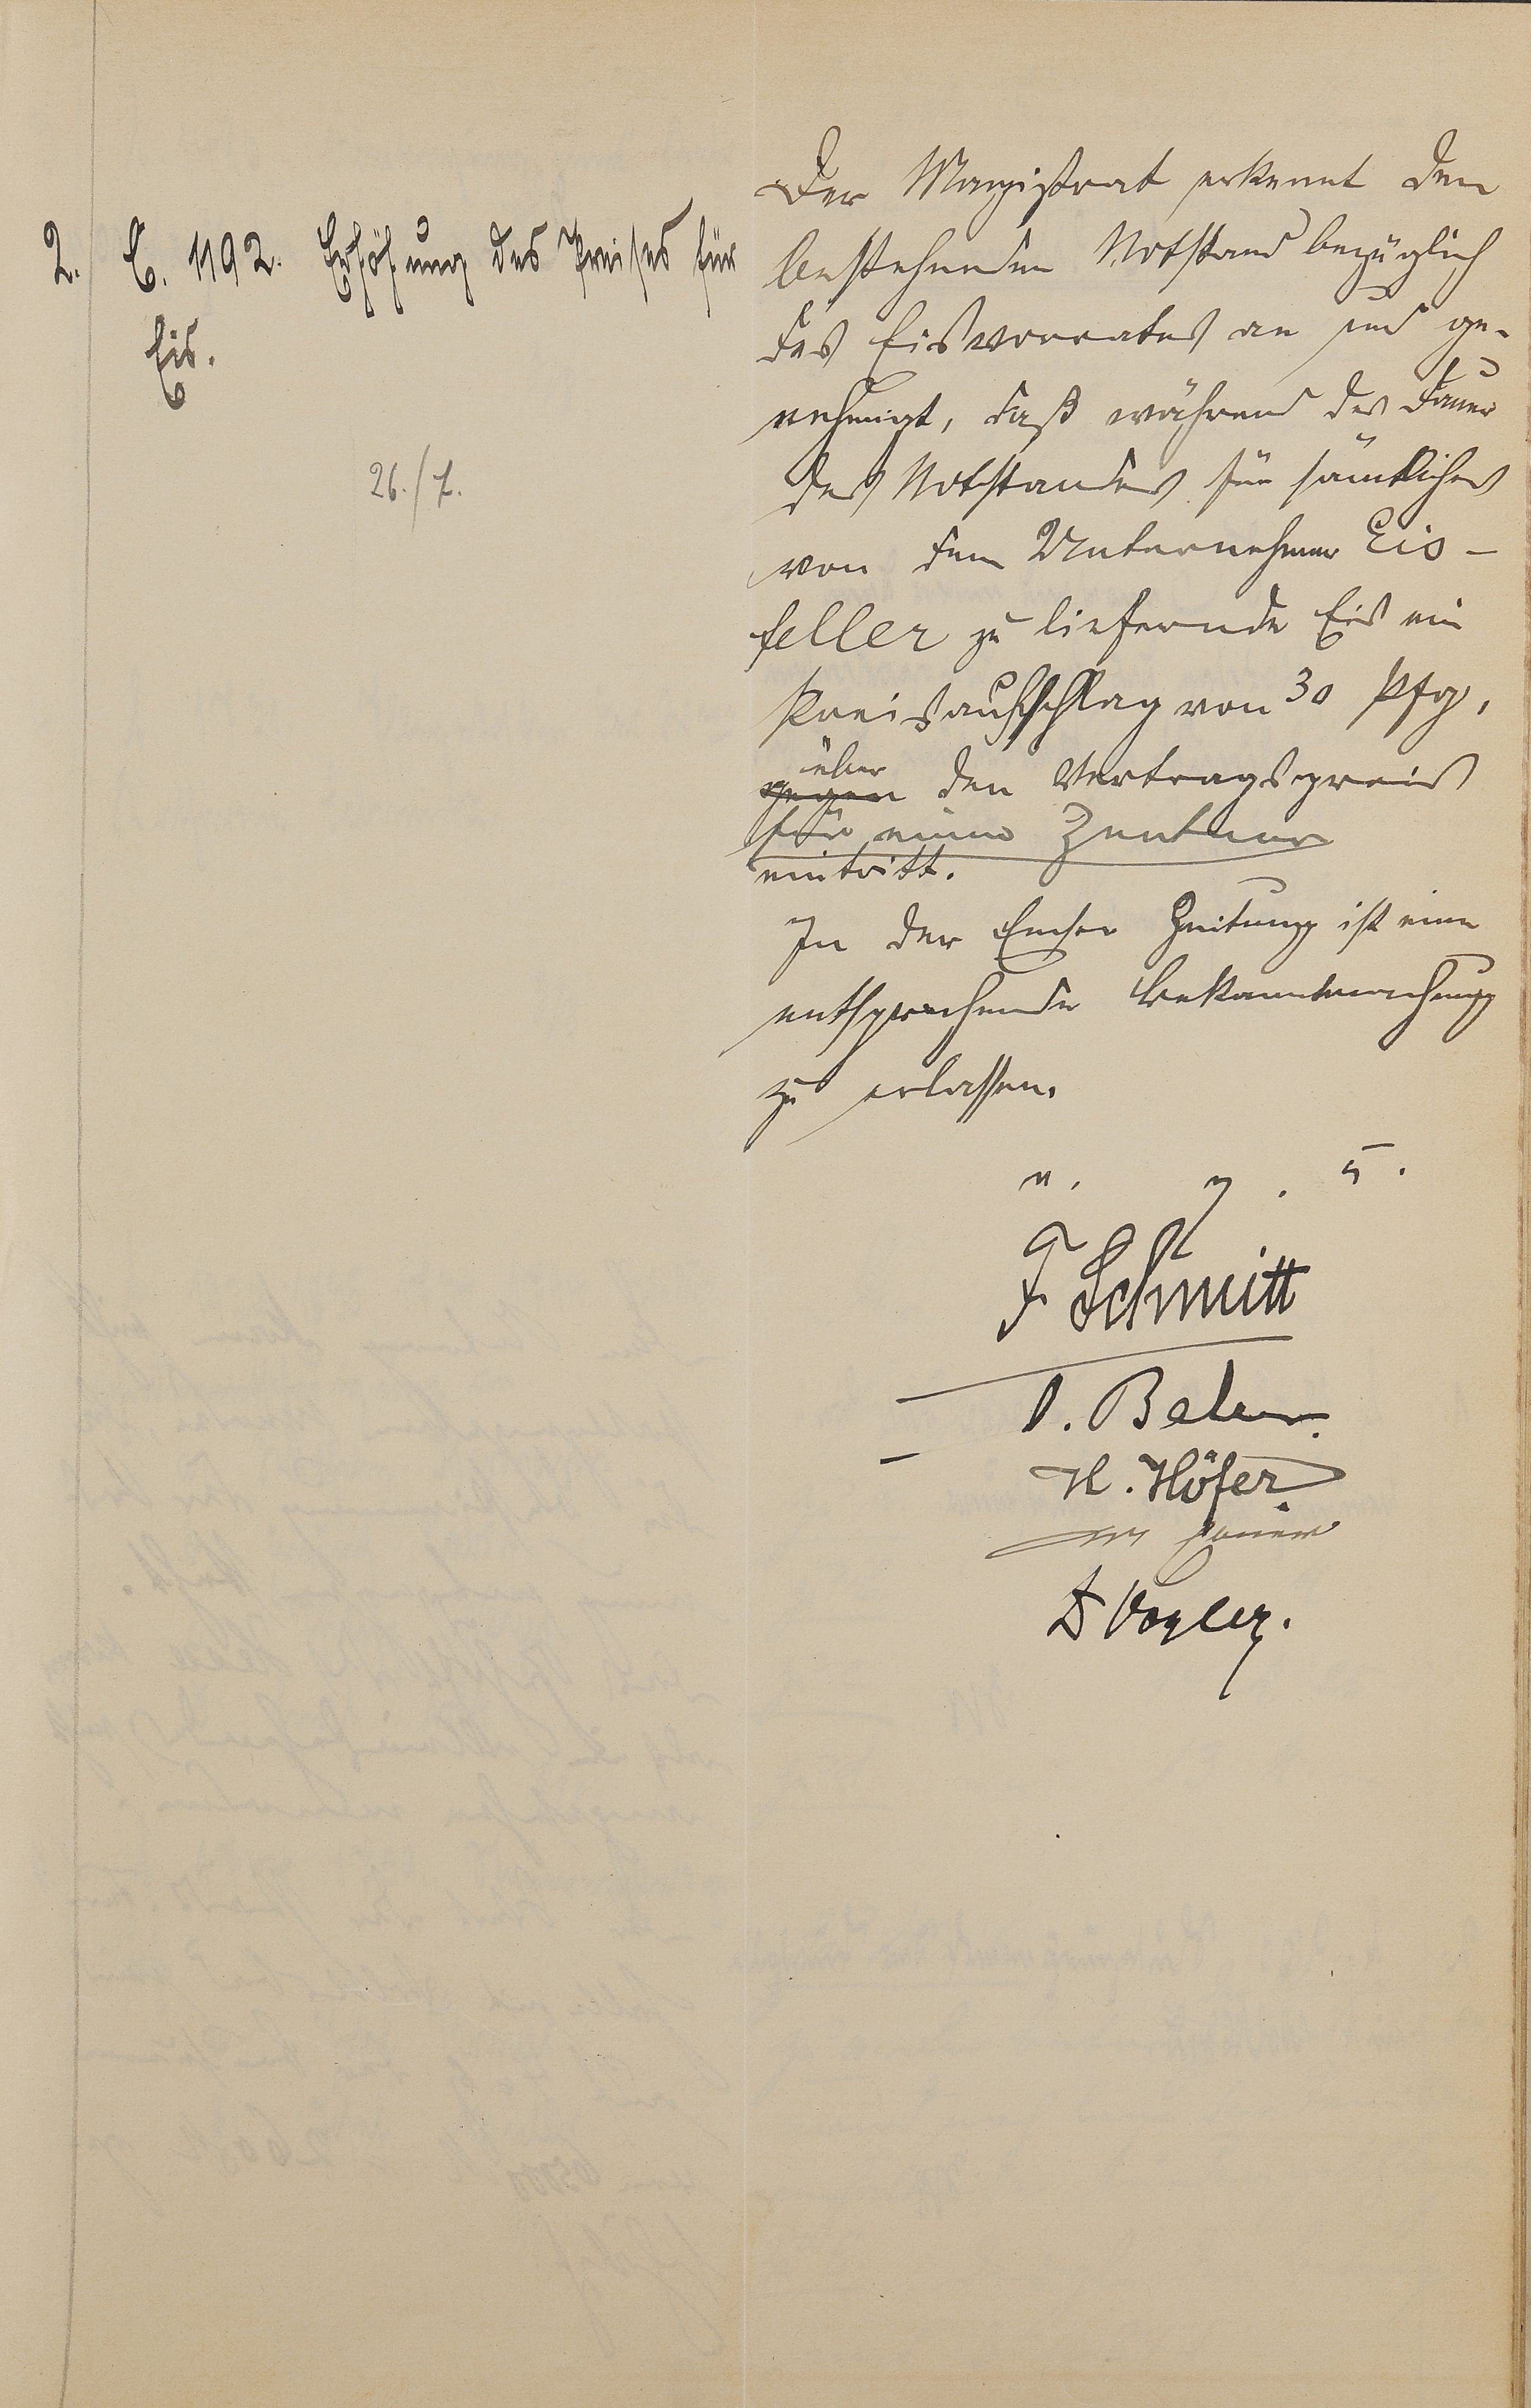 2. C. 1192. Erhöhung des Preises für
Eis.
26./7.
Der Magistrat erkennt den
bestehenden Notstand bezüglich
des Eisvorrates an und ge-
nehmigt, daß während der Dauer
des Notstandes für sämtliches
von dem Unternehmer Eis-
feller zu liefernde Eis ein
Preisaufschlag von 30 Pfg,
über
gegen den Vertragspreis
für einen Zentner
eintritt.
In der Emser Zeitung ist eine
entsprechende Bekanntmachung
zu erlassen.
F. Schmitt
H. Höfer
D Vogler.